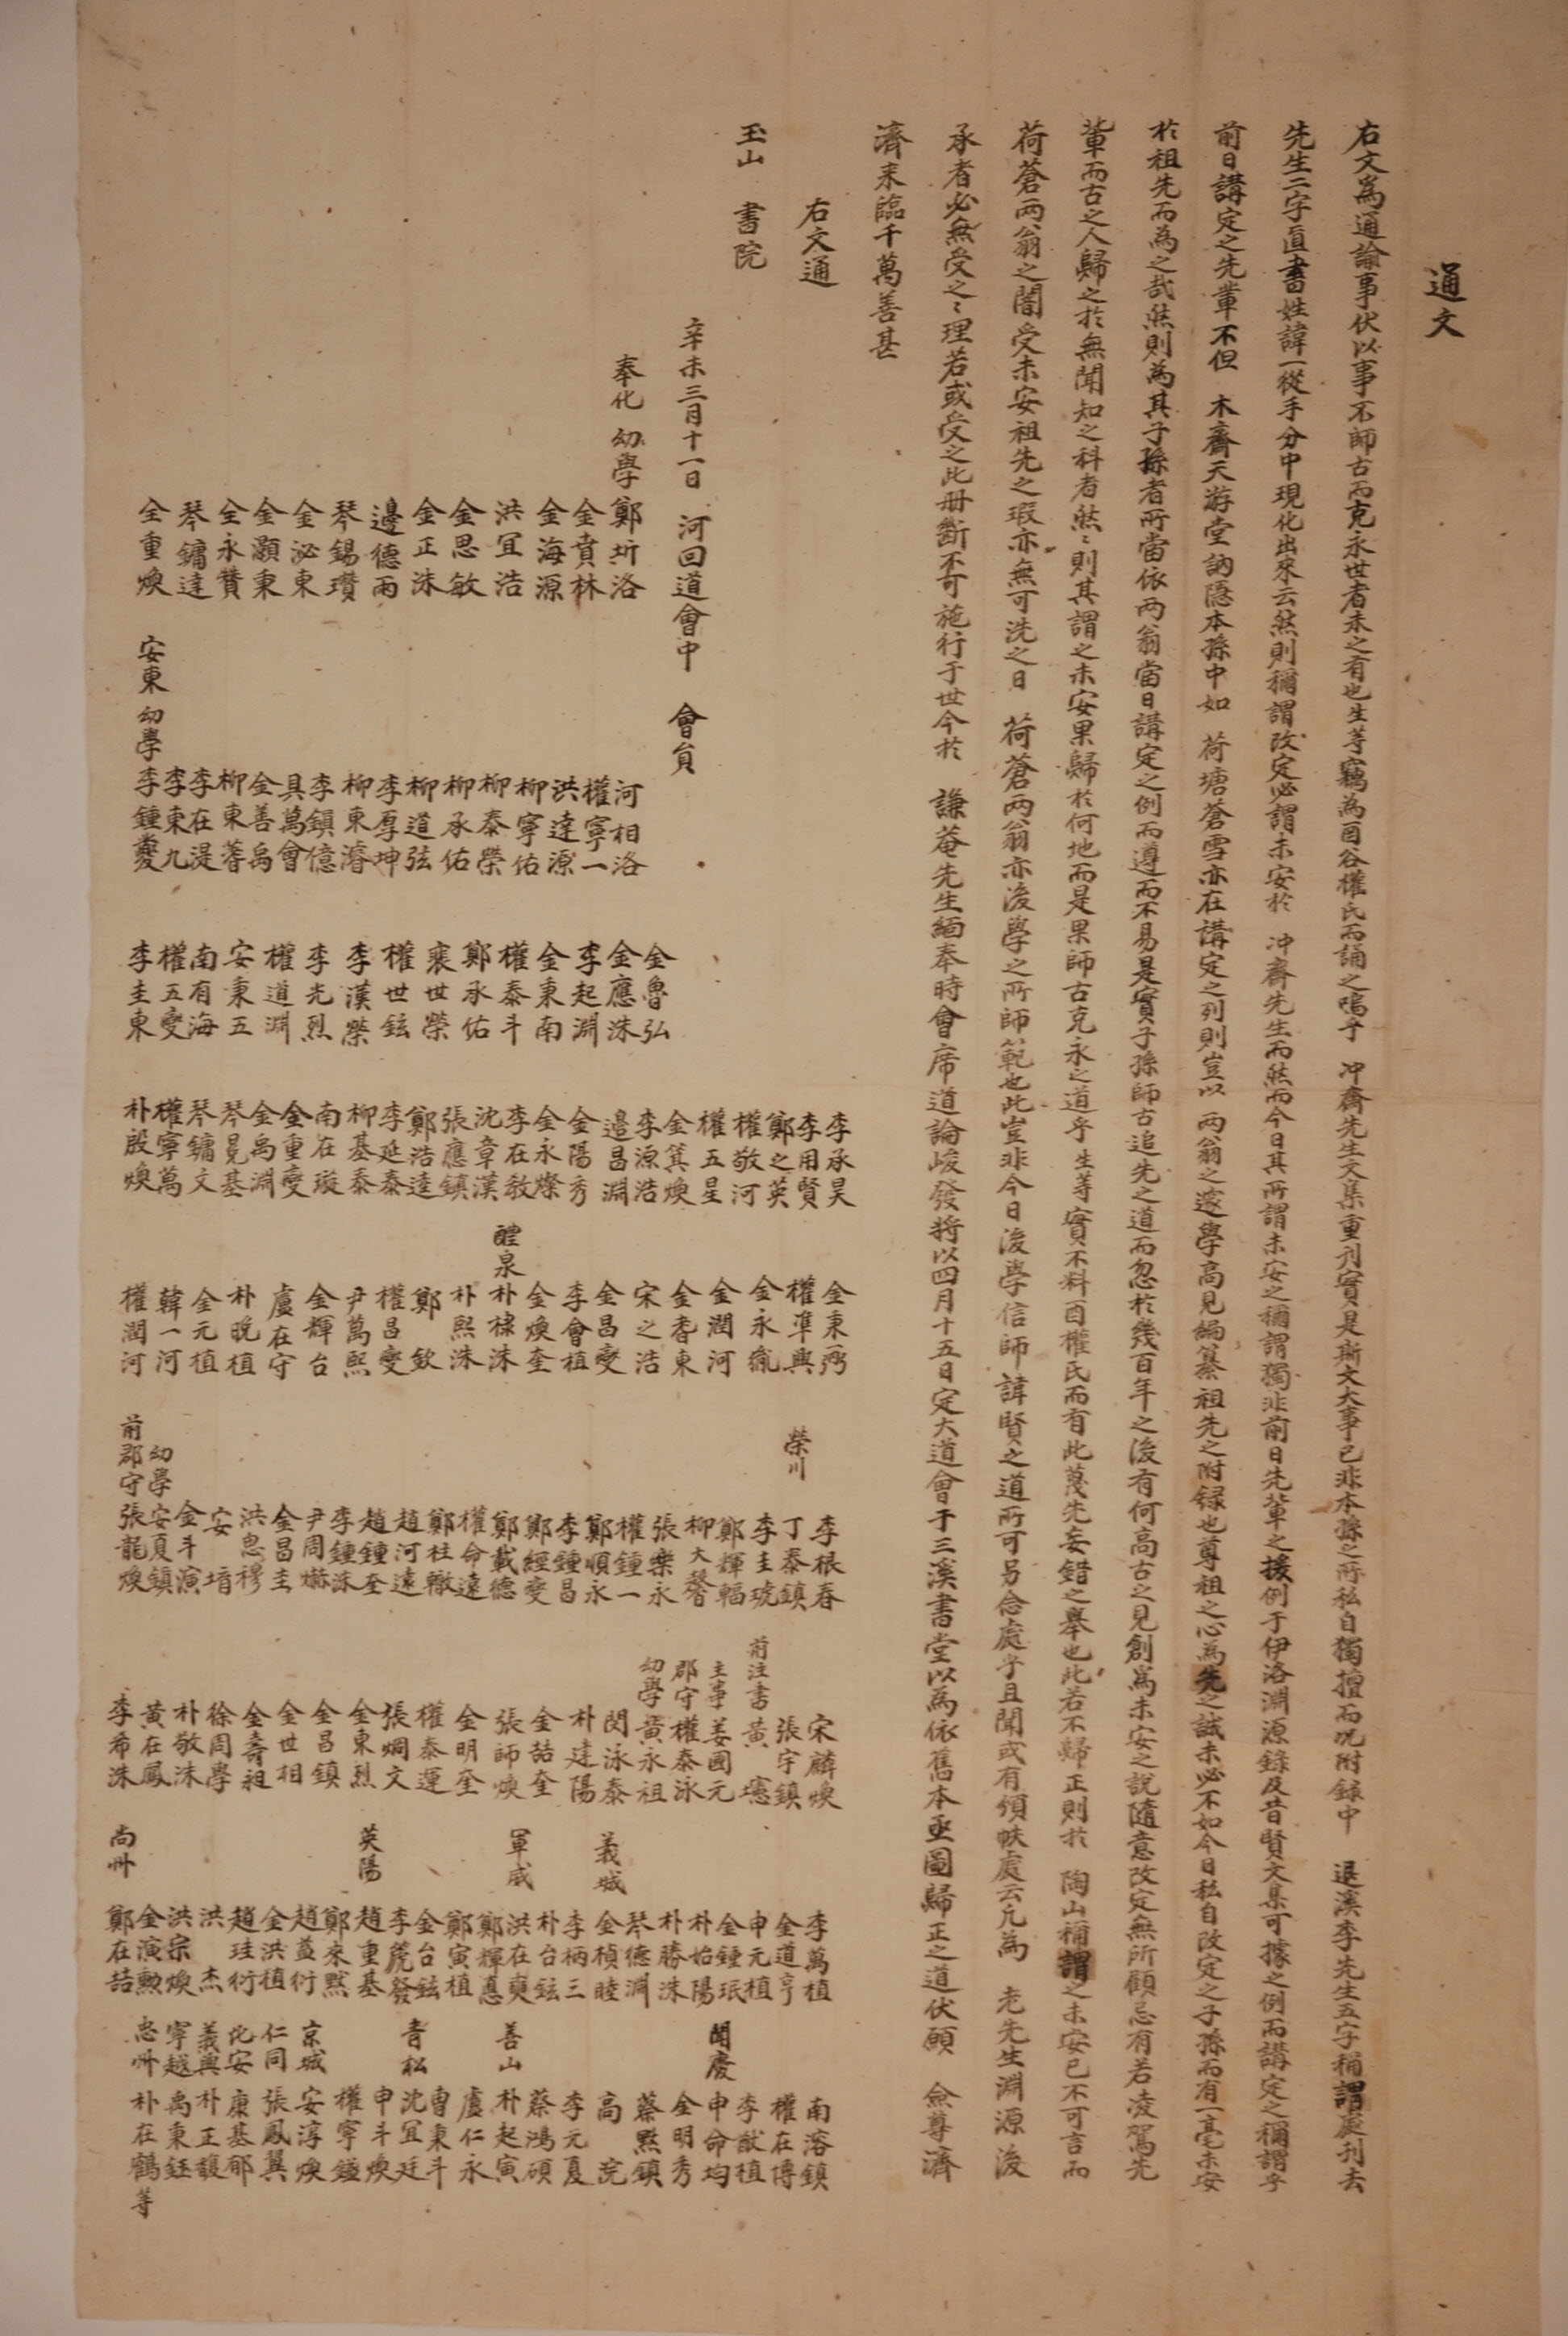 通文
右文爲通諭事伏以事不師古而克永世者未之有也生等竊為酉谷權氏而誦之嗚乎 冲齋先生文集重刋實是斯文大事已非本孫之所私自獨擅而况附録中 退溪李先生五字稱謂處刋去
先生二字直書姓諱一從手分中現化出來云然則稱謂改定必謂未安於 冲齋先生而然而今日其所謂未安之稱謂獨非前日先軰之援例于伊洛淵源錄及昔賢文集可據之例而講定之稱謂乎
前日講定之先軰不但 木齋天游堂訥隱本孫中如 荷塘蒼雪亦在講定之列則豈以 两翁之邃學高見編纂祖先之附録也尊祖之心為先之誠未必不如今日私自改定之子孫而有一毫未安
於祖先而為之哉然則為其子孫者所當依两翁當日講定之例而遵而不易是實子孫師古追先之道而忽於幾百年之後有何高古之見創爲未安之說隨意改定無所顧忌有若凌駕先
軰而古之人歸之於無聞知之科者然〻則其謂之未安果歸於何地而是果師古克永之道乎生等實不料酉權氏而有此蔑先妄錯之舉也此若不歸正則於 陶山稱謂之未安已不可言而
荷蒼两翁之闇受未安祖先之瑕亦無可洗之日 荷蒼两翁亦後學之所師範也此豈非今日後學信師諱賢之道所可另念處乎且聞或有頒帙處云凡為 老先生淵源後
承者必無受之〻理若或受之此冊斷不可施行于世今於 謙菴先生緬奉時會席道論峻發將以四月十五日定大道會于三溪書堂以為依舊本亟圖歸正之道伏願 僉尊濟
濟来臨千萬善甚
右文通
玉山 書院
辛未三月十一日 河回道會中 會員
奉化 幼學 鄭圻洛
金賁林
金海源
洪冝浩
金思敏
金正洙
邊德雨
琴錫瓚
金泌東
金灝秉
全永贊
琴鏞達
全重煥
安東 幼學
河相洛
權寧一
洪達源
柳寧佑
柳泰榮
柳承佑
柳道弦
李厚坤
柳東濬
李鎭億
具萬會
金善禹
柳東蓍
李在湜
李東九
李鍾夔
金魯弘
金應洙
李起淵
金東南
權泰斗
鄭承佑
裵世榮
權世鉉
李漢榮
李光烈
權道淵
安秉五
南有海
權五夔
李圭東
李承昊
李用賢
鄭之英
權敬河
權五星
金箕煥
李源浩
邉昌淵
金陽秀
金永燦
李在敎
沈章漢
張應鎮
鄭浩逵
李延泰
柳基泰
南在璇
金重夔
金禹淵
琴晃基
琴鏞文
權寧萬
朴殷煥
金東弼
權準興
金永胤
金潤河
金耆東
宋之浩
金昌夔
李會植
金煥奎
醴泉 朴棣洙
朴熙洙
鄭 欽
權昌夔
尹萬熙
金輝台
盧在守
朴晩植
金元植
韓一河
權潤河
李根春
榮川 丁泰鎮
李圭琥
鄭輝輻
柳大馨
張樂永
權鍾一
鄭順永
李鍾昌
鄭經夔
鄭載德
權命遠
鄭柱轍
趙河遠
趙鍾奎
李鍾洙
尹周爀
金昌圭
洪思穆
安 堉
金斗演
幼學 安夏鎮
前郡守 張龍煥
宋麟煥
張宇鎮
前注書 黃 㙉
主事 姜國元
郡守 權泰泳
幼學 黃永祖
閔泳泰
朴建陽
金喆奎
張師煥
金明奎
權泰運
張炯文
金東烈
金昌鎮
金世相
金壽祖
徐周學
朴敬洙
黃在鳳
李希洙
李萬植
金道亨
申元植
金鍾珉
朴始陽
朴勝洙
琴德淵
義城 金楨睦
李柄三
朴台鉉
軍威 洪在奭
鄭輝悳
鄭寅植
金台鉉
李虎發
英陽 趙重基
鄭來黙
趙益衍
金洪植
趙珪衍
洪 杰
洪宗煥
金演勳
尚州 鄭在喆
南溶鎮
權在博
李猷植
聞慶 申命均
全明秀
蔡黙鎮
高 沇
李元夏
蔡鴻碩
善山 朴起寅
盧仁永
曺東斗
青松 沈冝廷
申斗煥
權寧鎰
京城 安淳煥
仁同 張鳳翼
化安 康基郁
義興 朴正馥
寧越 禹東鈺
忠州 朴在鶴 等